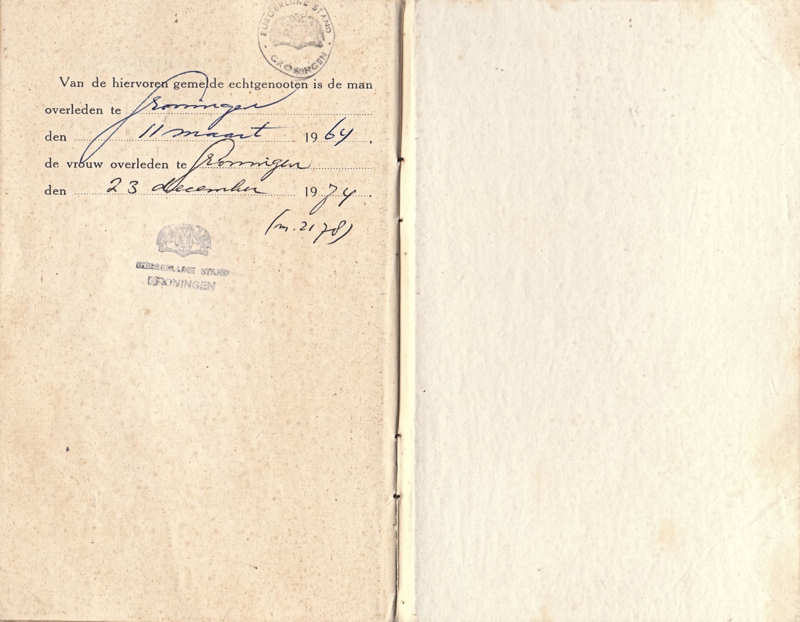 BURGERLIJKE STAND
GRONINGEN
Van de hiervoren gemelde echtgenooten is de man
overleden te Groningen
den 11 maart 1964.
de vrouw overleden te Groningen
den 23 december 1974.
(m. 2178)
BURGERLIJKE STAND
GRONINGEN